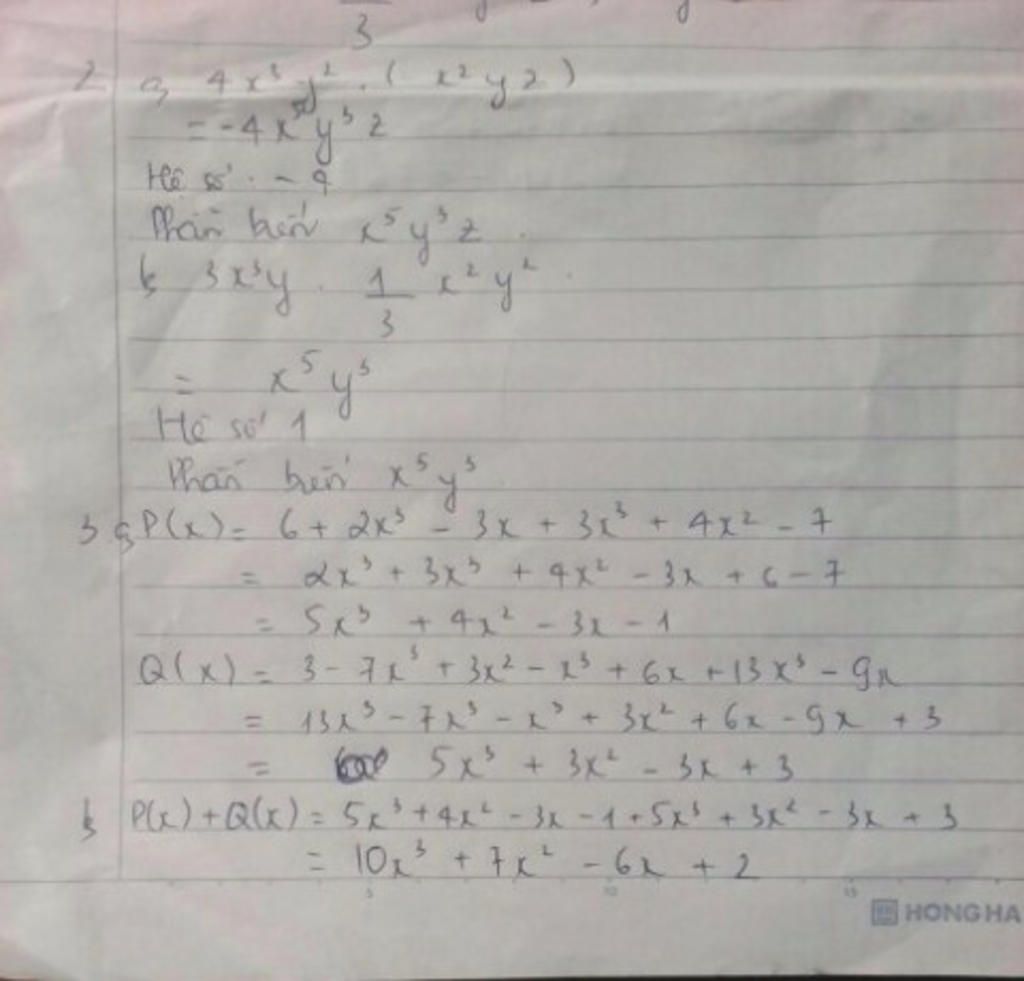 3
2 a, 4x³y² . ( x²yz )
= -4x⁵y³z
Hệ số . - 4
Phần biến x⁵y³z .
b, 3x³y . 1/3 x²y² .
= x⁵y³
Hệ số 1
Phần biến x⁵y³
3 a, P(x) = 6 + 2x³ - 3x + 3x³ + 4x² - 7
= 2x³ + 3x³ + 4x² - 3x + 6 - 7
= 5x³ + 4x² - 3x - 1
Q(x) = 3 - 7x³ + 3x² - x³ + 6x + 13x³ - 9x
= 13x³ - 7x³ - x³ + 3x² + 6x - 9x + 3
= 5x³ + 3x² - 3x + 3
b, P(x) + Q(x) = 5x³ + 4x² - 3x - 1 + 5x³ + 3x² - 3x + 3
= 10x³ + 7x² - 6x + 2
5 10 15
HONG HA